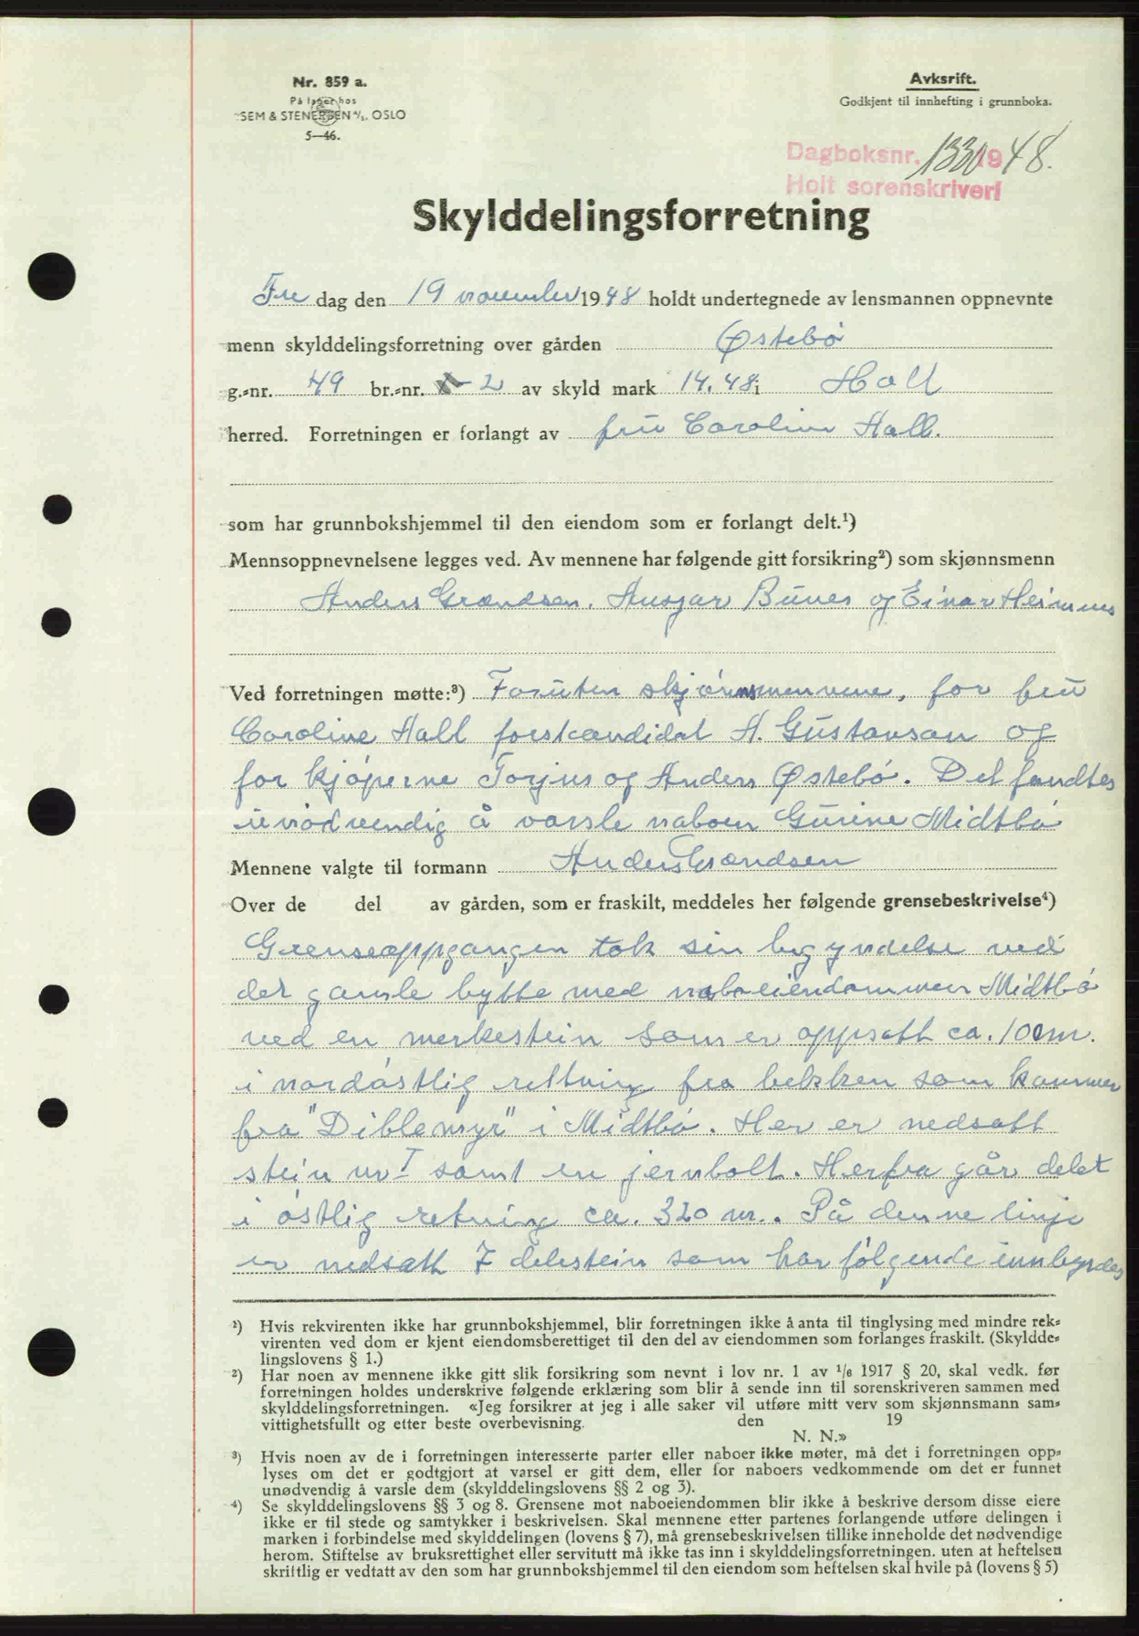 Nr. 859 a.
På lager hos
SEM & STENERSEN A/S, OSLO
5—46.
Avksrift.
Godkjent til innhefting i grunnboka.
Dagboksnr. 1330 1948.
Holt sorenskriveri
Skylddelingsforretning
Fre dag den 19 november 1948 holdt undertegnede av lensmannen oppnevnte
menn skylddelingsforretning over gården Østebö
g.-nr. 49 br.-nr. 2 av skyld mark 14.48 i Holt
herred. Forretningen er forlangt av fru Caroline Hall.
som har grunnbokshjemmel til den eiendom som er forlangt delt.¹)
Mennsoppnevnelsene legges ved. Av mennene har følgende gitt forsikring²) som skjønnsmenn
Anders Grændsen, Ansgar Bunes og Einar Heimnes
Ved forretningen møtte:³) Foruten skjönnsmennene, for fru
Caroline Hall forstkandidat H. Gustavson og
for kjöperne Torjus og Anders Østebö. Det fandtes
unödvendig å varsle naboen Gurine Midtbö
Mennene valgte til formann Anders Grændsen
Over de del av gården, som er fraskilt, meddeles her følgende grensebeskrivelse⁴)
Grenseoppgangen tok sin begyndelse ved
det gamle bytte med naboeiendommen Midtbö
ved en merkestein som er oppsatt ca. 100 m.
i nordöstlig rettning fra bekken som kommer
fra "Diblemyr" i Midtbö. Her er nedsatt
stein nr I samt en jernbolt. Herfra går delet
i östlig retning ca. 320 m. På denne linje
er nedsatt 7 delestein som har fölgende innbyrdes
¹) Hvis rekvirenten ikke har grunnbokshjemmel, blir forretningen ikke å anta til tinglysing med mindre rek-
virenten ved dom er kjent eiendomsberettiget til den del av eiendommen som forlanges fraskilt. (Skyldde-
lingslovens § 1.)
²) Har noen av mennene ikke gitt slik forsikring som nevnt i lov nr. 1 av 1/6 1917 § 20, skal vedk. før
forretningen holdes underskrive følgende erklæring som blir å sende inn til sorenskriveren sammen med
skylddelingsforretningen. «Jeg forsikrer at jeg i alle saker vil utføre mitt verv som skjønnsmann sam-
vittighetsfullt og etter beste overbevisning. den 19
N. N.»
³) Hvis noen av de i forretningen interesserte parter eller naboer ikke møter, må det i forretningen opp-
lyses om det er godtgjort at varsel er gitt dem, eller for naboers vedkommende om det er funnet
unødvendig å varsle dem (skylddelingslovens §§ 2 og 3).
⁴) Se skylddelingslovens §§ 3 og 8. Grensene mot naboeiendommen blir ikke å beskrive dersom disse eiere
ikke er til stede og samtykker i beskrivelsen. Skal mennene etter partenes forlangende utføre delingen i
marken i forbindelse med skylddelingen (lovens § 7), må grensebeskrivelsen tillike inneholde det nødvendige
herom. Stiftelse av bruksrettighet eller servitutt må ikke tas inn i skylddelingsforretningen. uten at heftelsen
skriftlig er vedtatt av den som har grunnbokshjemmel til den eiendom som heftelsen skal hvile på (lovens § 5)